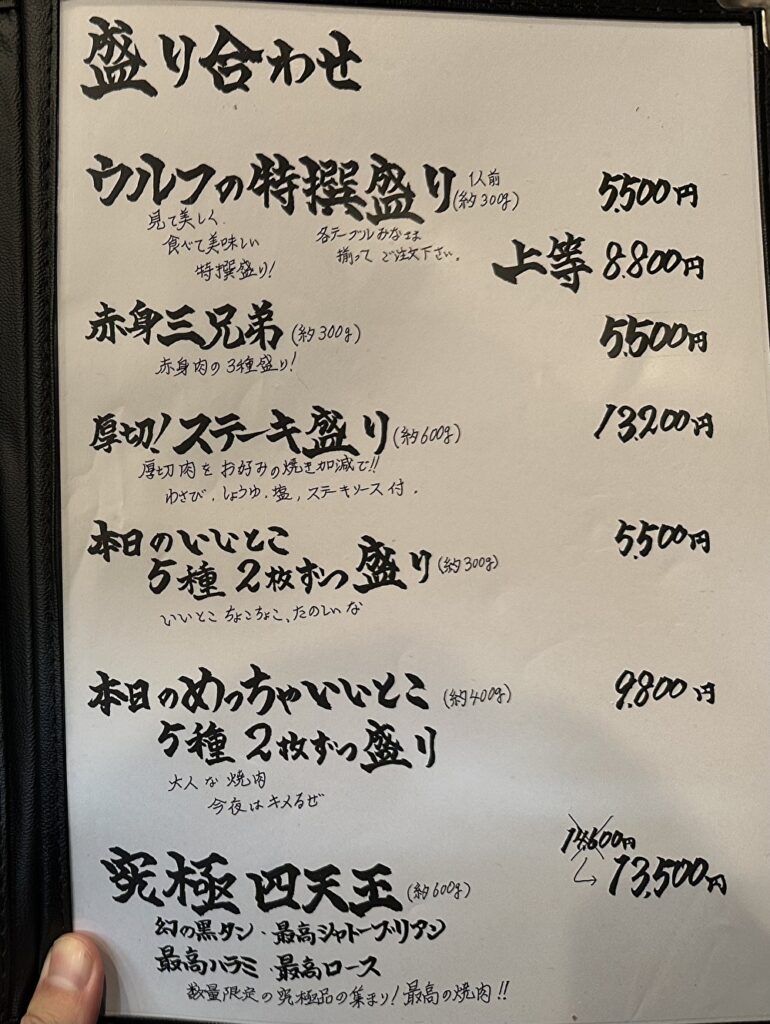 盛り合わせ
ウルフの特撰盛り 1人前 (約300g) 5,500円
見て美しく
食べて美味しい
特撰盛り!
各テーブルみなさま
揃って ご注文下さい。
上等 8,800円
赤身三兄弟 (約300g) 5,500円
赤身肉の3種盛り!
厚切!ステーキ盛り (約600g) 13,200円
厚切肉をお好みの焼き加減で!!
わさび、しょうゆ、塩、ステーキソース付.
本日のいいとこ 5,500円
5種2枚ずつ盛り (約300g)
いいとこちょこちょこ、たのしいな
本日のめっちゃいいとこ (約400g) 9,800円
5種2枚ずつ盛り
大人な焼肉
今夜はキメるぜ
14,600円
究極四天王 (約600g) ↳ 13,500円
幻の黒タン・最高シャトーブリアン
最高ハラミ・最高ロース
数量限定の究極品の集まり!最高の焼肉!!